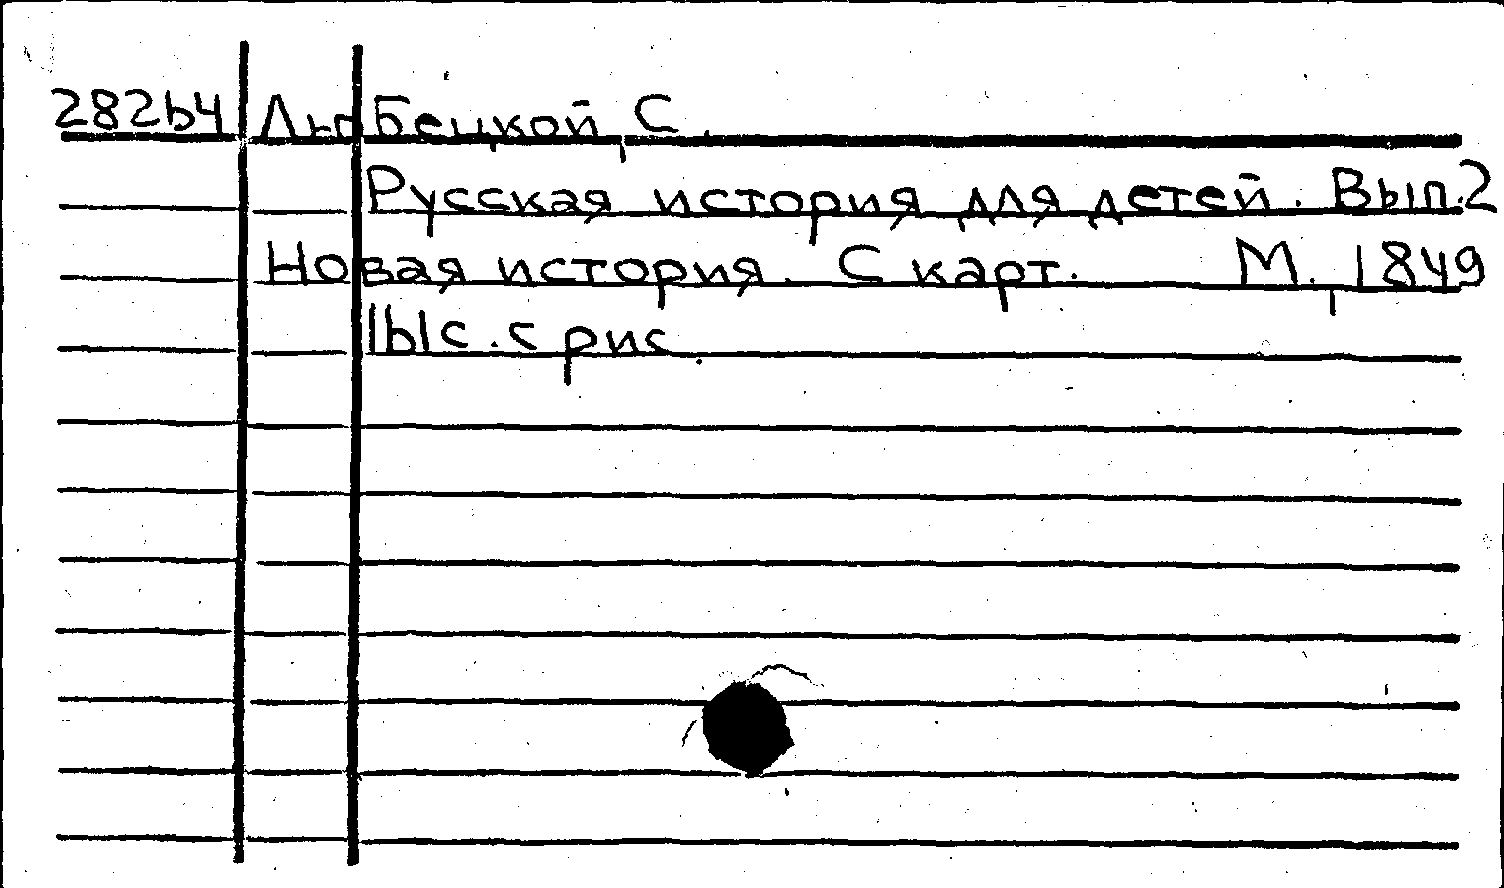 28264 Любецкой, С.
Русская история для детей. Вып.2
Новая история. С карт. М., 1849
161 с. с рис.